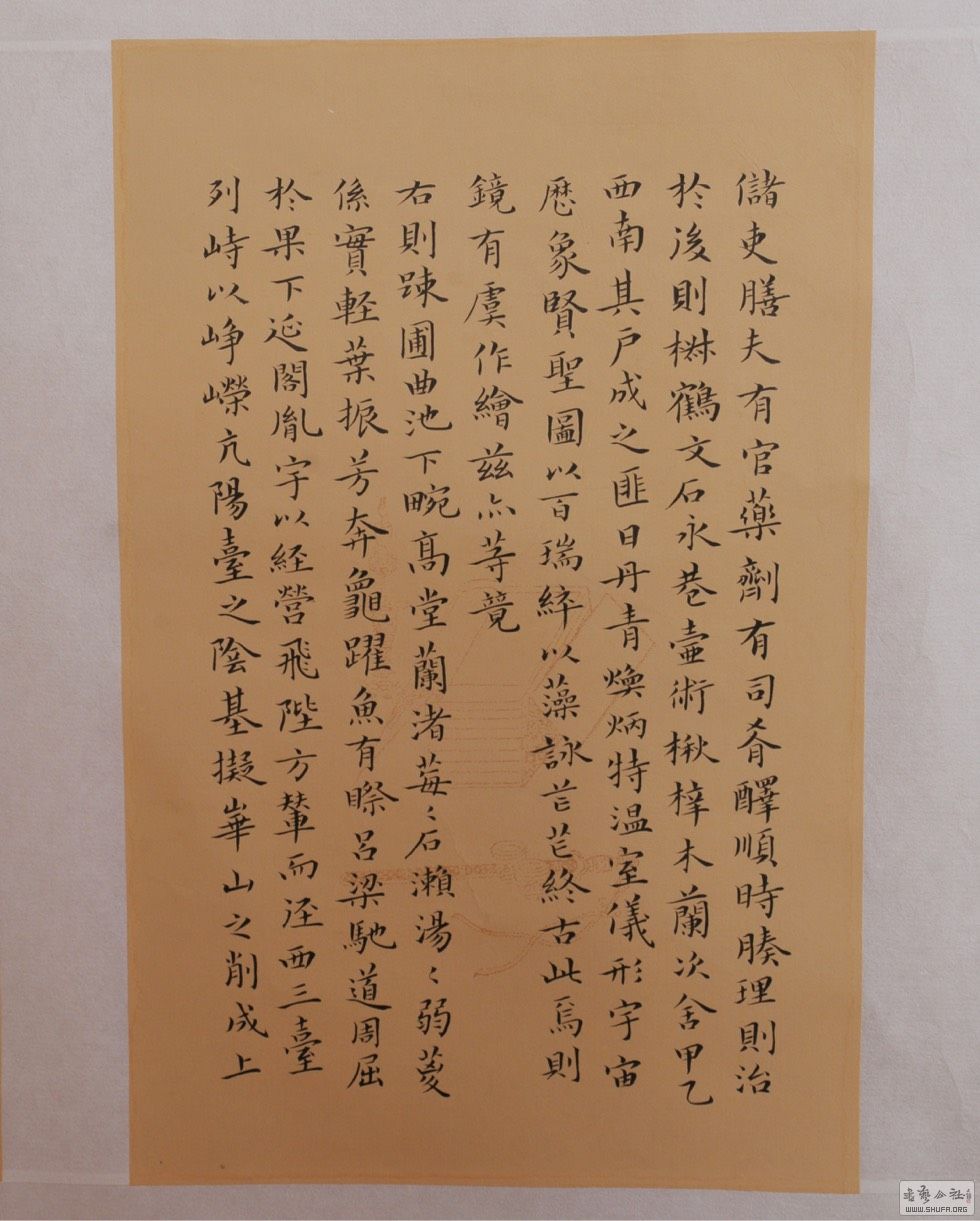 儲吏膳夫有官藥劑有司肴醳順時腠理則治
於後則椒鶴文石永巷壼術楸梓木蘭次舍甲乙
西南其戶成之匪日丹青煥炳特温室儀形宇宙
歷象賢聖圖以百瑞綷以藻詠芒芒終古此焉則
鏡有虞作繪兹亦等競
右則踈圃曲池下畹高堂蘭渚莓〻石瀨湯〻弱葼
係實輕葉振芳奔龜躍魚有䁺呂梁馳道周屈
於果下延閣胤宇以経營飛陛方輦而逕西三臺
列峙以峥嶸亢陽臺之陰基擬崋山之削成上
書藝公社
WWW.SHUFA.ORG